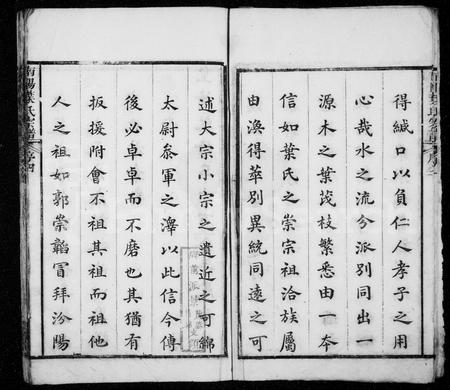 得緘口以負仁人孝子之用
心哉水之流分派別同出一
源木之葉茂枝繁悉由一本
信如葉氏之崇宗祖洽族屬
由渙得萃別異統同遠之可
述大宗小宗之遺近之可綿
太尉叅軍之澤以此信今傳
後必卓卓而不磨也其猶有
扳援附會不祖其祖而祖他
人之祖如郭崇韜冒拜汾陽
南陽葉氏宗譜